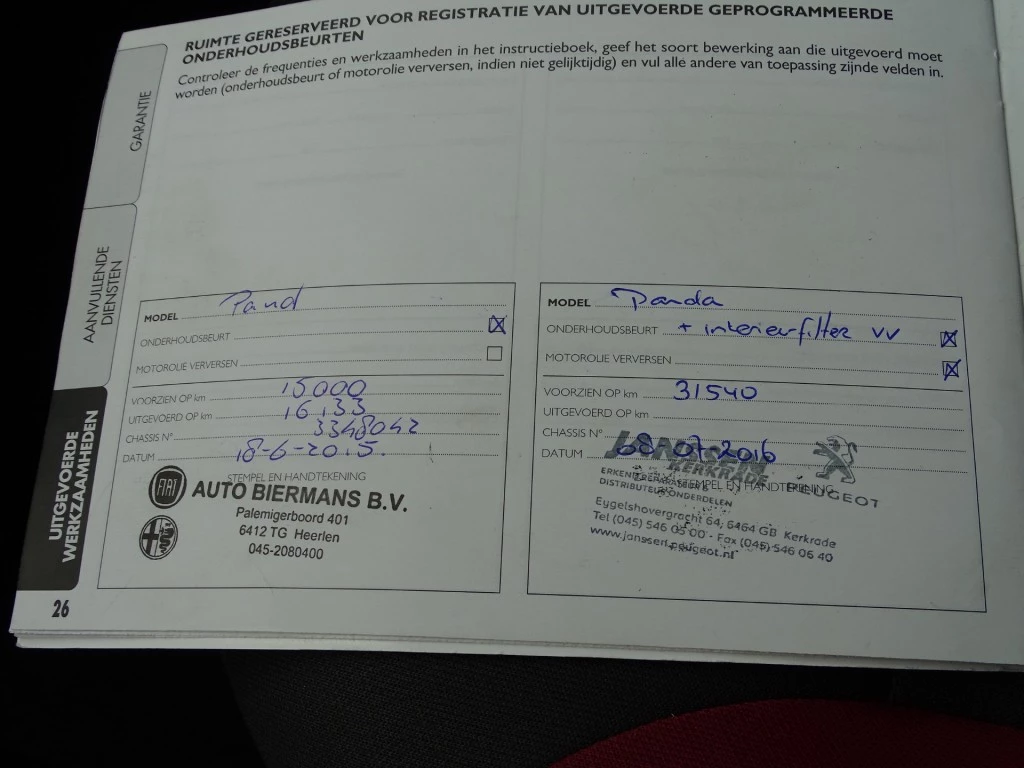 RUIMTE GERESERVEERD VOOR REGISTRATIE VAN UITGEVOERDE GEPROGRAMMEERDE
ONDERHOUDSBEURTEN
Controleer de frequenties en werkzaamheden in het instructieboek, geef het soort bewerking aan die uitgevoerd moet
worden (onderhoudsbeurt of motorolie verversen, indien niet gelijktijdig) en vul alle andere van toepassing zijnde velden in.
GARANTIE
AANVULLENDE
DIENSTEN
UITGEVOERDE
WERKZAAMHEDEN
MODEL Pand
ONDERHOUDSBEURT
MOTOROLIE VERVERSEN
VOORZIEN OP km 15000
UITGEVOERD OP km 16133
CHASSIS N° 3348042
DATUM 18-6-2015.
STEMPEL EN HANDTEKENING
FIAT
AUTO BIERMANS B.V.
Palemigerboord 401
6412 TG Heerlen
045-2080400
MODEL Panda
ONDERHOUDSBEURT + interieurfilter vv
MOTOROLIE VERVERSEN
VOORZIEN OP km 31540
UITGEVOERD OP km
CHASSIS N°
DATUM 07-2016
JANSSEN
KERKRADE
PEUGEOT
STEMPEL EN HANDTEKENING
DISTRIBUTEUR ONDERDELEN
Eygelshovergracht 64, 6464 GB Kerkrade
Tel (045) 546 05 00 - Fax (045) 546 06 40
www.janssen.peugeot.nl
26